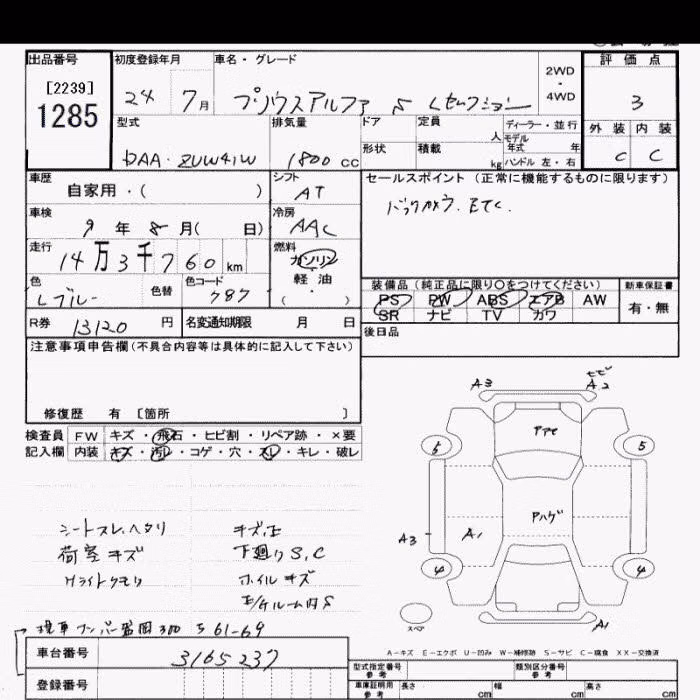 出品番号 初度登録年月 車名・グレード 2WD・4WD 評価点
[2239]
1285
24 7月 プリウスアルファ S Lセレクション 3
型式 排気量 ドア 定員 人 ディーラー・並行 外装 内装
形状 積載 kg モデル年式 年 ハンドル 左・右
DAA・ZVW41W 1800cc C C
車歴 シフト セールスポイント (正常に機能するものに限ります)
自家用・( ) AT バックカメラ.ETC.
車検 冷房
9年8月( 日) AAC
走行 燃料
14万3千760km ガソリン・軽油・( )
色 色替 色コード 装備品 (純正品に限り○をつけてください) 新車保証書
Lブルー 787 PS PW ABS エアB AW 有・無
SR ナビ TV カワ
R券 13120円 名変通知期限 月 日 後日品
注意事項申告欄 (不具合内容等は具体的に記入して下さい)
修復歴 有 [箇所 ]
検査員 FW キズ・飛石・ヒビ割・リペア跡・×要
記入欄 内装 キズ・汚レ・コゲ・穴・スレ・キレ・破レ
A3 A2
アアセ
5 5
アハゲ
A3 A1
4 4
スペア A1
シートスレ.ヘタリ キズ,凹
荷室キズ 下廻りS,C
Hライトクモリ ホイルキズ
ルーム内S
盛岡300 ち 61-69
A-キズ E-エクボ U-凹み W-補修跡 S-サビ C-腐食 XX-交換済
車台番号 3165237
登録番号
型式指定番号 参考 類別区分番号 参考
車庫証明用 参考 長さ cm 幅 cm 高さ cm